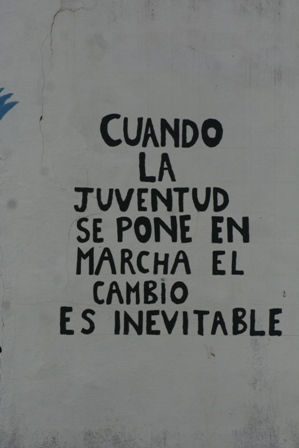 CUANDO
LA
JUVENTUD
SE PONE EN
MARCHA EL
CAMBIO
ES INEVITABLE